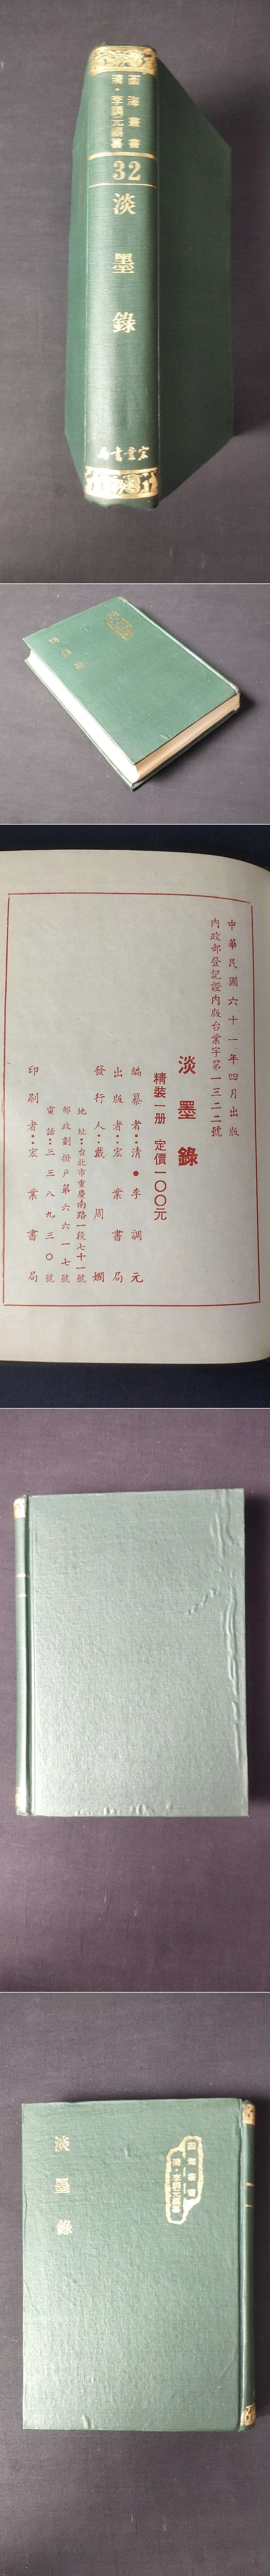 函海叢書
清·李調元編纂
32
淡墨錄
宏業書局
淡墨錄
中華民國六十一年四月出版
內政部登記證內版台業字第一三二二號
淡墨錄
精裝一册 定價一〇〇元
編纂者：清·李調元
出版者：宏業書局
發行人：戴周嫻
地址：台北市重慶南路一段七十一號
郵政劃撥戶第六六一七號
電話：三三八九三〇號
印刷者：宏業書局
函海叢書
清·李調元編纂
淡墨錄